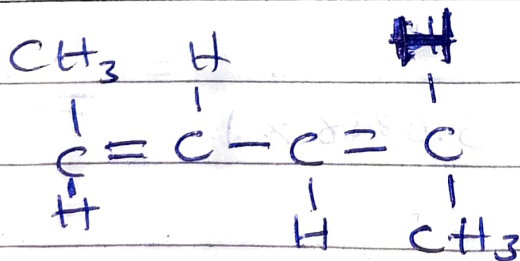 CH3 H H
C = C - C = C
H H CH3